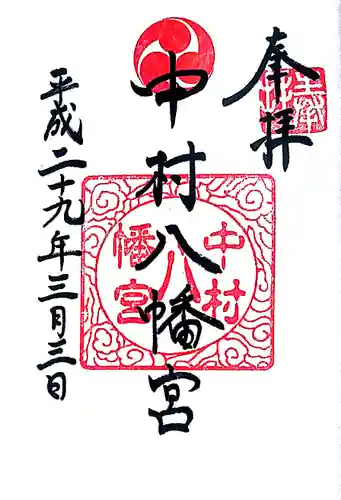 奉拝
奉拝
中村八幡宮
中村
八
幡宮
平成二十九年三月三日